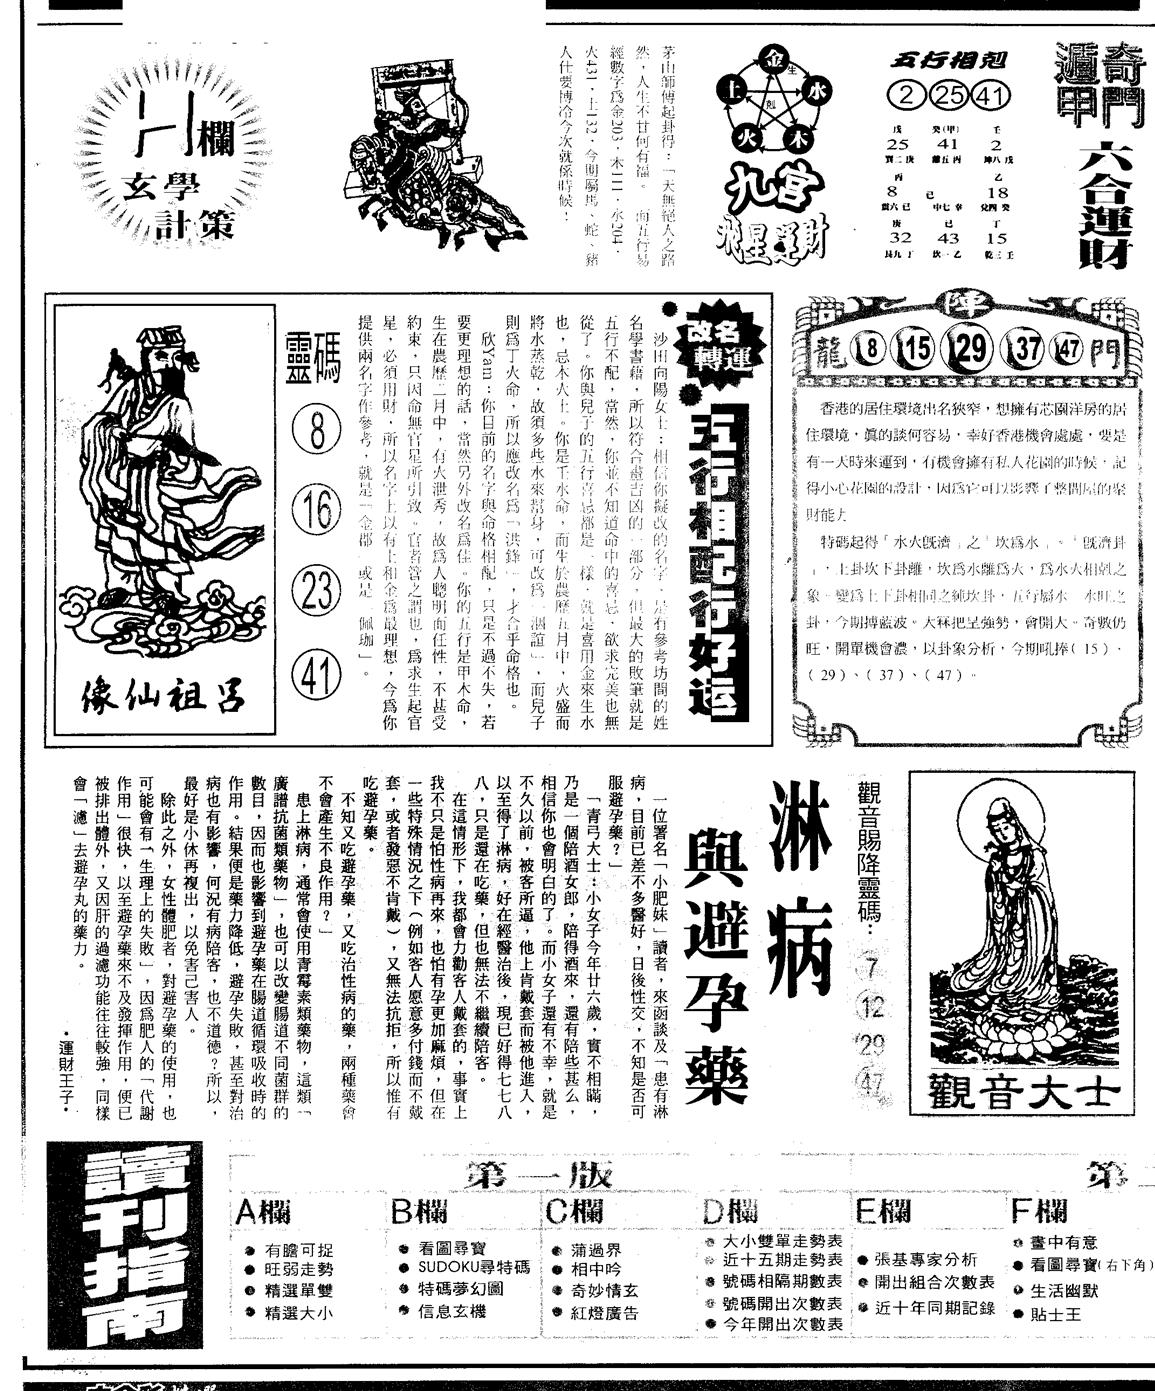 H欄
玄學
計策
茅山師傅起卦得:「天無絕人之路
然,人生不甘何有福。 而五行易
經數字爲金203,木111,水204,
火431,土132,今期屬馬、蛇、豬
人仕要博冷今次就係時候!
金
生
水
木
火
土
剋
九宮
飛星運財
五行相剋
2 25 41
戊 癸(甲) 壬
25 41 2
巽二庚 離五丙 坤八戊
丙 乙
8 己 18
震六己 中七辛 兌四癸
庚 己 丁
32 43 15
艮九丁 坎一乙 乾三壬
奇門
遁甲
六合運財
呂祖仙像
靈碼
8
16
23
41
改名
轉運
五行相配行好運
沙田向陽女士:相信你擬改的名字,是有參考坊間的姓
名學書藉,所以符合畫吉凶的一部分,但最大的敗筆就是
五行不配,當然,你並不知道命中的喜忌,欲求完美也無
從了。你與兒子的五行喜忌都是一樣,就是喜用金來生水
也,忌木火土。你是壬水命,而生於農歷五月中,火盛而
將水蒸乾,故須多些水來幫身,可改爲「涠誼」,而兒子
則爲丁火命,所以應改名爲「洪鋒」,才合乎命格也。
欣Yam:你目前的名字與命格相配,只是不過不失,若
要更理想的話,當然另外改名爲佳。你的五行是甲木命,
生在農歷二月中,有火泄秀,故爲人聰明而任性,不甚受
約束,只因命無官星所引致。官者管之謂也,爲求生起官
星,必須用財,所以名字上以有土和金爲最理想,今爲你
提供兩名字作參考,就是「金郡」或是「佩珈」。
陣
龍 8 15 29 37 47 門
香港的居住環境出名狹窄,想擁有芯園洋房的居
住環境,眞的談何容易,幸好香港機會處處,要是
有一天時來運到,有機會擁有私人花園的時候,記
得小心花園的設計,因爲它可以影響了整間屋的聚
財能力
特碼起得「水火旣濟」之「坎爲水」。「旣濟卦
」,上卦坎下卦離,坎爲水離爲火,爲水火相剋之
象。變爲上下卦相同之純坎卦,五行屬水,水旺之
卦,今期搏藍波。大冧把呈強勢,會開大。奇數仍
旺,開單機會濃,以卦象分析,今期吼捧(15)、
(29)、(37)、(47)。
觀音大士
觀音賜降靈碼:
7
12
29
47
淋病
與避孕藥
一位署名「小肥妹」讀者,來函談及「患有淋
病,目前已差不多醫好,日後性交,不知是否可
服避孕藥?」
「青弓大士:小女子今年廿六歲,實不相瞞,
乃是一個陪酒女郎,陪得酒來,還有陪些甚么,
相信你也會明白的了。而小女子還有不幸,就是
不久以前,被客所逼,他上肯戴套而被他進人,
以至得了淋病,好在經醫治後,現已好得七七八
八,只是還在吃藥,但也無法不繼續陪客。
在這情形下,我都會力勸客人戴套的,事實上
我不只是怕性病再來,也怕有孕更加麻煩,但在
一些特殊情況之下(例如客人愿意多付錢而不戴
套,或者發惡不肯戴),又無法抗拒,所以惟有
吃避孕藥。
不知又吃避孕藥,又吃治性病的藥,兩種藥會
不會產生不良作用?」
患上淋病,通常會使用青霉素類藥物,這類「
廣譜抗菌類藥物」,也可以改變腸道不同菌群的
數目,因而也影響到避孕藥在腸道循環吸收時的
作用。結果便是藥力降低,避孕失敗,甚至對治
病也有影響,何況有病陪客,也不道德?所以,
最好是小休再複出,以免害己害人。
除此之外,女性體肥者,對避孕藥的使用,也
可能會有「生理上的失敗」,因爲肥人的「代謝
作用」很快,以至避孕藥來不及發揮作用,便已
被排出體外,又因肝的過濾功能往往較強,同樣
會「濾」去避孕丸的藥力。
·運財王子·
讀刊指南
第一版
第二
A欄
● 有膽可捉
● 旺弱走勢
● 精選單雙
● 精選大小
B欄
● 看圖尋寶
● SUDOKU尋特碼
● 特碼夢幻圖
● 信息玄機
C欄
● 蒲過界
● 相中吟
● 奇妙情玄
● 紅燈廣告
D欄
● 大小雙單走勢表
● 近十五期走勢表
● 號碼相隔期數表
● 號碼開出次數表
● 今年開出次數表
E欄
● 張基專家分析
● 開出組合次數表
● 近十年同期記錄
F欄
● 畫中有意
● 看圖尋寶(右下角)
● 生活幽默
● 貼士王